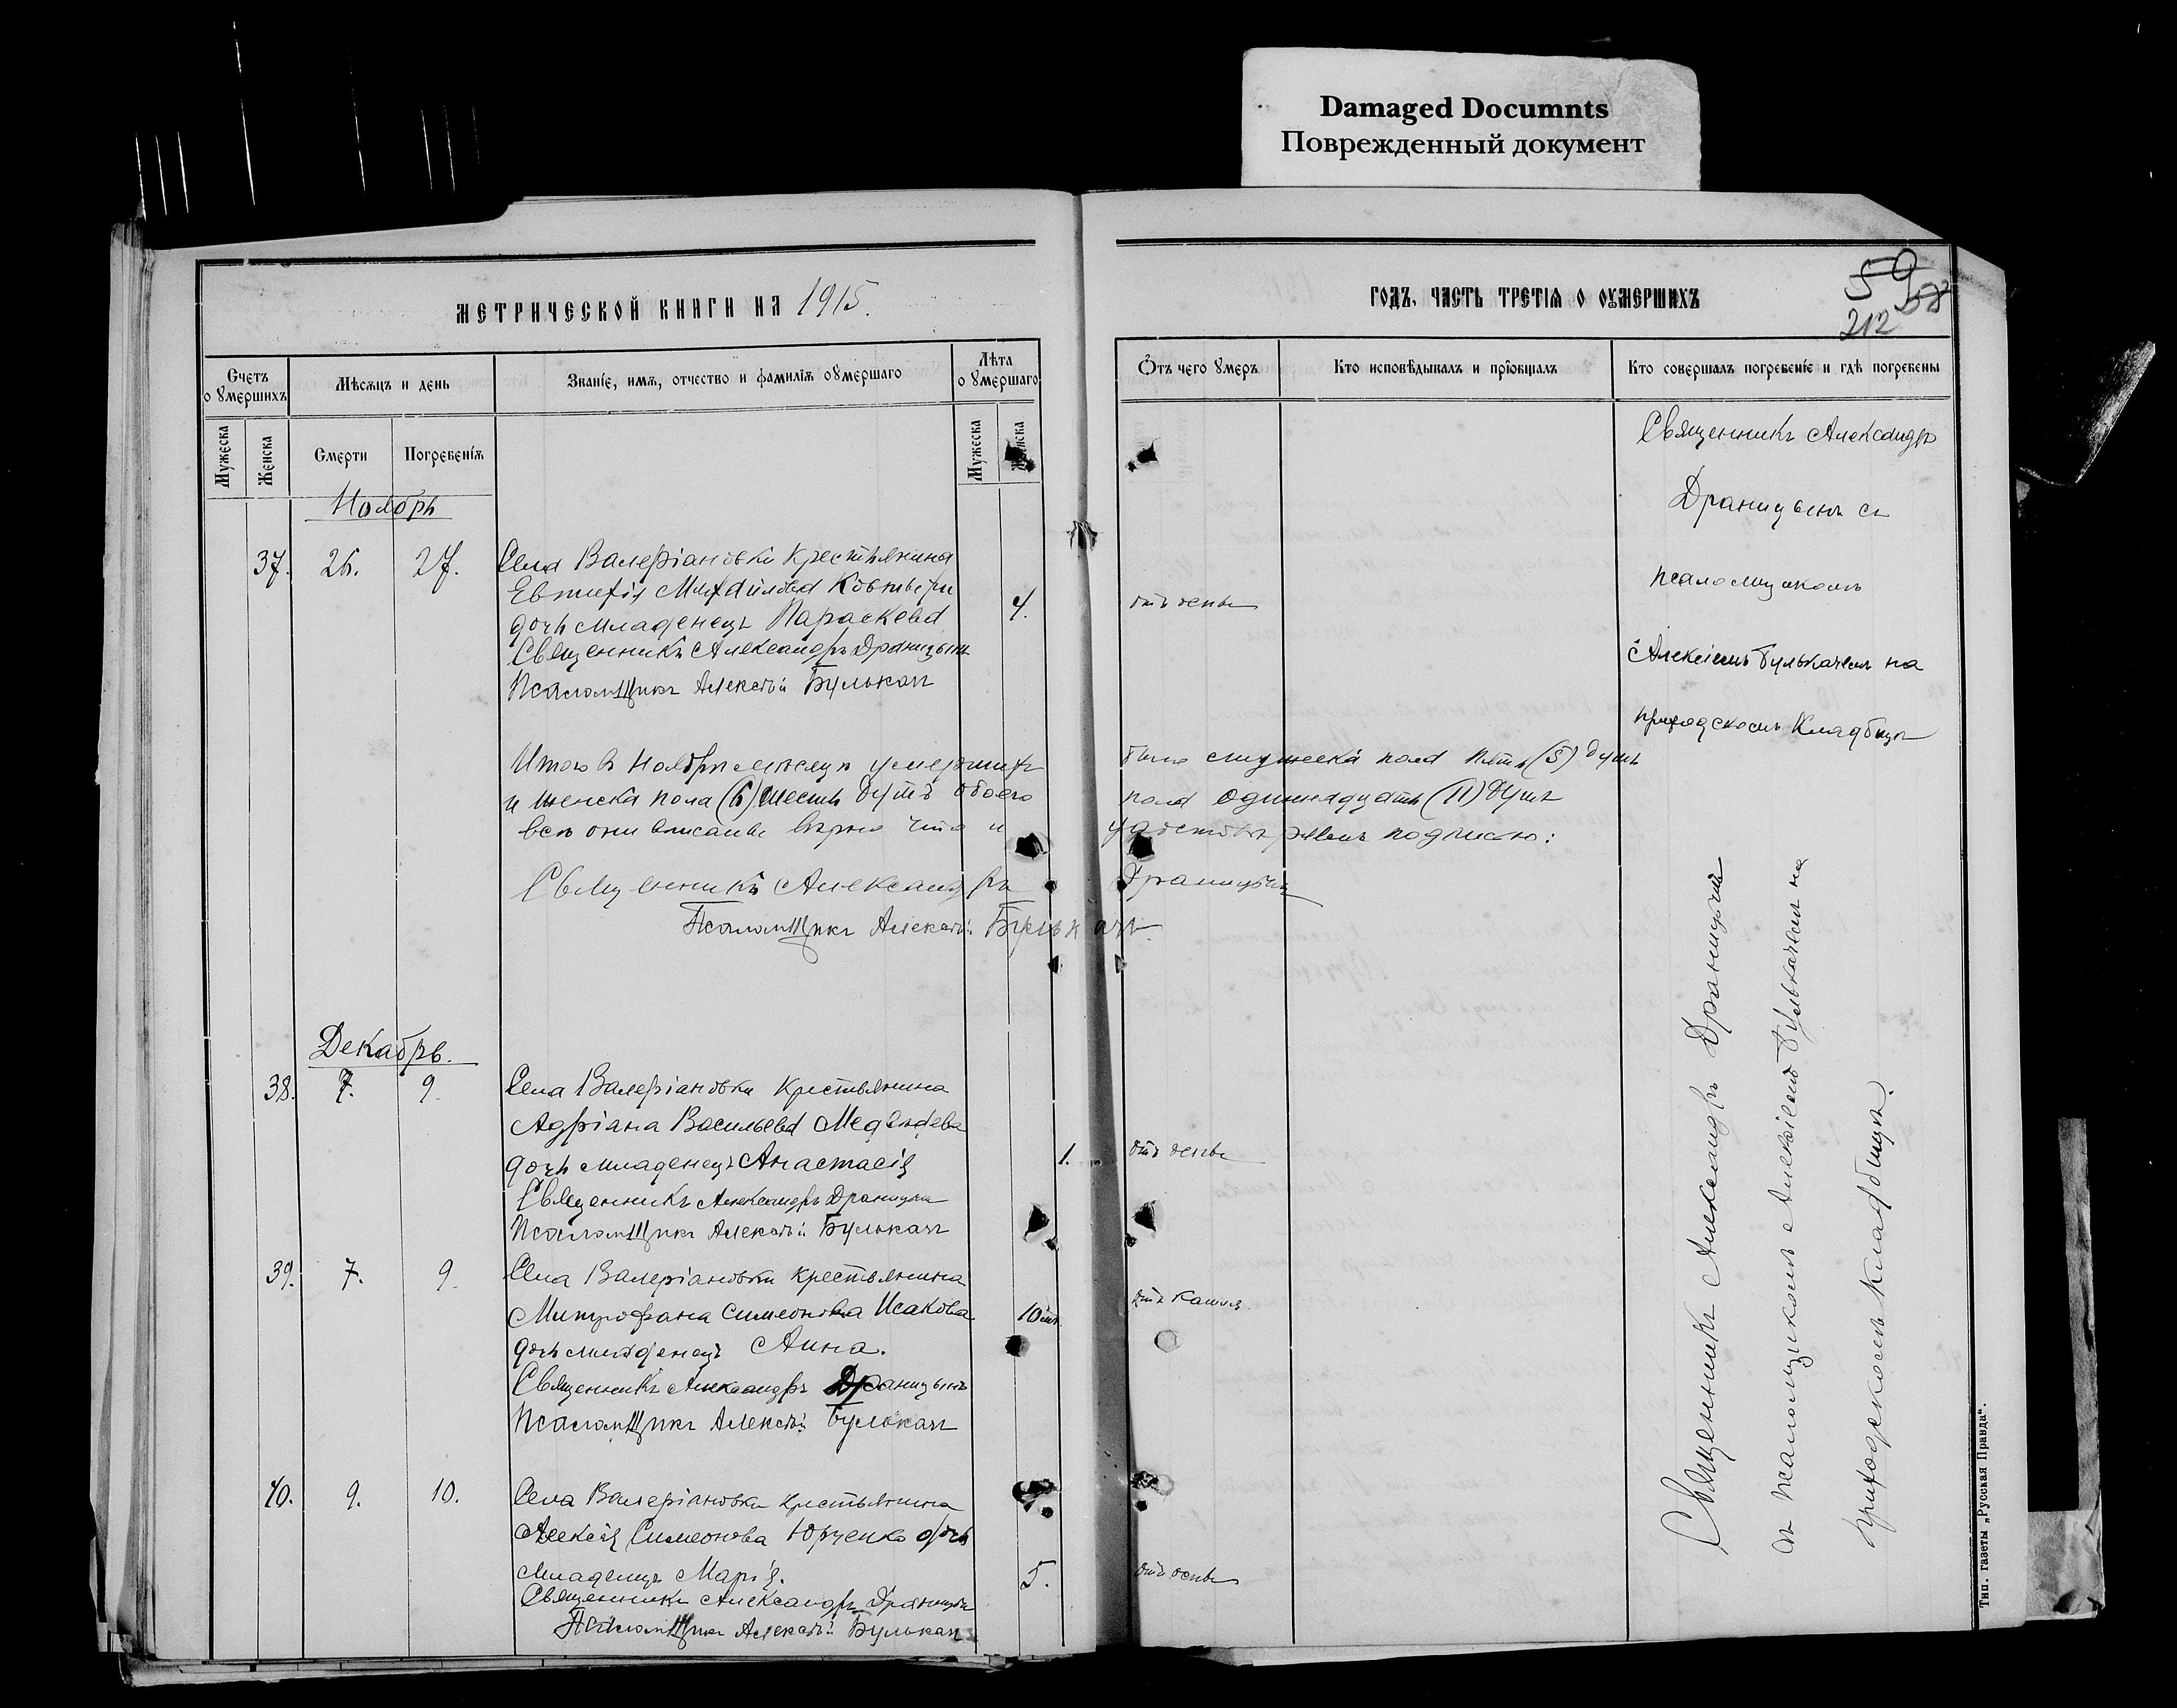 Damaged Documnts
Поврежденный документ
МЕТРИЧЕСКОЙ КНИГИ НА 1915.
ГОДЪ, ЧАСТЬ ТРЕТІѦ О ОУМЕРШИХЪ
59
58
212
Счетъ о ѹмершихъ
Мѣсѧцъ и день
Званіе, имѧ, отчество и фамиліѧ оумершаго
Лѣта о ѹмершаго
Ѿтъ чего ѹмеръ
Кто исповѣдывалъ и прїобщалъ
Кто совершалъ погребеніе и гдѣ погребены
Мужеска
Женска
Смерти
Погребеніѧ
Мужеска
Женска
Ноябрь
37. 26. 27. Села Валеріановки крестьянина
Михаилова
дочь младенецъ Параскева 4. отъ оспы
Священникъ Александръ Драницынъ
Псаломщикъ Алексѣй Булькачъ
Священникъ Александръ
Драницынъ съ
псаломщикомъ
Алексіемъ Булькачемъ на
приходскомъ кладбищѣ
Итого въ Ноябрѣ мѣсяцѣ умершихъ было мужеска пола пять (5) душъ
и женска пола (6) шесть душъ обоего пола одиннадцать (11) душъ
всѣ они вписаны вѣрно что и удостовѣряемъ подписью:
Священникъ Александръ Драницынъ
Псаломщикъ Алексѣй Булькачъ.
Декабрь.
38. 7. 9. Села Валеріановки крестьянина
Адріана Васильева Медведева
дочь младенецъ Анастасія 1. отъ оспы
Священникъ Александръ Драницынъ
Псаломщикъ Алексѣй Булькачъ
39. 7. 9. Села Валеріановки крестьянина
Митрофана Симеонова Исакова 10 м. отъ кашля
дочь младенецъ Анна.
Священникъ Александръ Драницынъ
Псаломщикъ Алексѣй Булькачъ
40. 9. 10. Села Валеріановки крестьянина
Алексія Симеонова Юрченко дочь
младенецъ Марія. 5. отъ оспы
Священникъ Александръ Драницынъ
Псаломщикъ Алексѣй Булькачъ
Священникъ Александръ Драницынъ
съ псаломщикомъ Алексіемъ Булькачемъ на
приходскомъ кладбищѣ.
Тип. газеты „Русская Правда“.